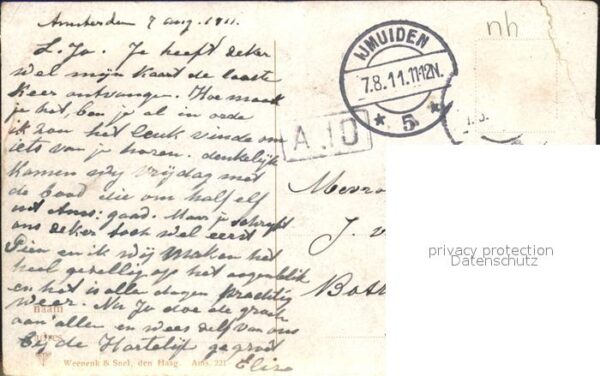 Amsterdam 7 aug. 1911.
L. Jo. Je heeft zeker
wel mijn kaart de laatste
keer ontvangen. Hoe maak
je het, ben je al in orde
ik zou het leuk vinde om
iets van je horen. denkelijk
komen wij vrijdag met
de boot die om half elf
uit Ams: gaad. Maar je schrijft
ons zeker toch wel eerst
Pien en ik wij maken het
heel gezellig op het oogenblik
en het is alle dagen prachtig
weer. Nu Jo doe de groete
aan allen en wees zelf van ons
bij de Hartelijk gegroet
Elise
naam
adres
Weenenk & Snel, den Haag. Ams. 221
nh
IJMUIDEN
7.8.11.11-12N.
* 5 *
A.10
Mevro
J. v
Bott
privacy protection
Datenschutz